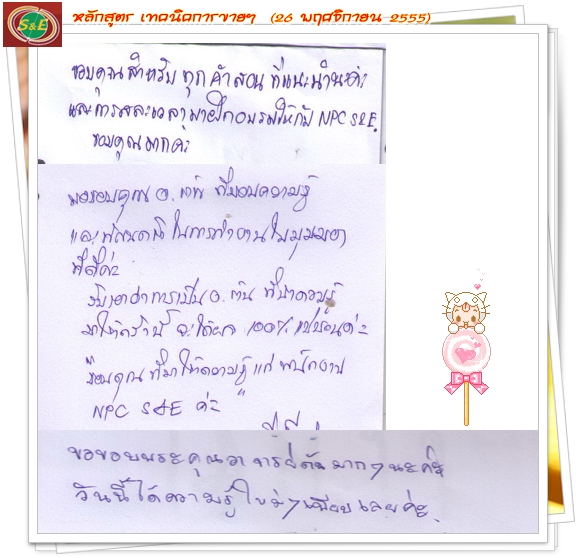 S&E
หลักสูตร เทคนิคการขายฯ (26 พฤศจิกายน 2555)
ขอบคุณสำหรับ ทุกคำสอน ที่แนะนำนะค่ะ
และการสละเวลามาฝึกอบรมให้กับ NPC S&E.
ขอบคุณมากค่ะ
ขอขอบคุณ อ. ที่มอบความรู้
และ ในการทำงานในมุมมอง
ที่ดีค่ะ
อ. ที่นำความรู้
มา จะได้ผล 100% แน่นอนค่ะ
ขอบคุณที่มาให้ความรู้แก่ พนักงาน
NPC S&E ค่ะ
ขอขอบพระคุณอาจารย์ มากๆนะครับ
วันนี้ได้ความรู้ใหม่ๆเยอะเลยค่ะ.